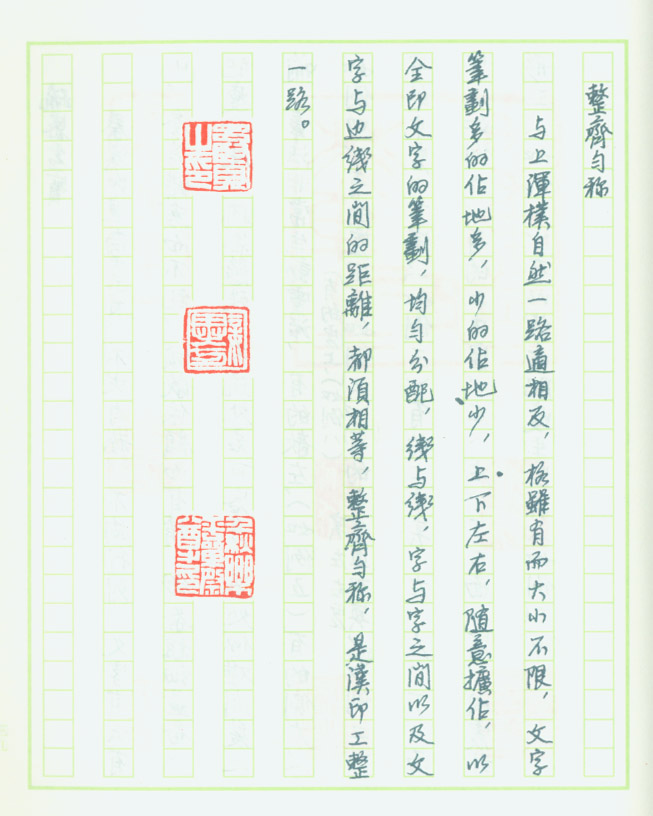 整齊勻称
与上渾樸自然一路適相反，格雖有而大小不限，文字
筆劃多的佔地多，少的佔地少，上下左右，隨意擴佔，以
全印文字的筆劃，均勻分配，綫与綫，字与字之間以及文
字与边綫之間的距離，都須相等，整齊勻称，是漢印工整
一路。